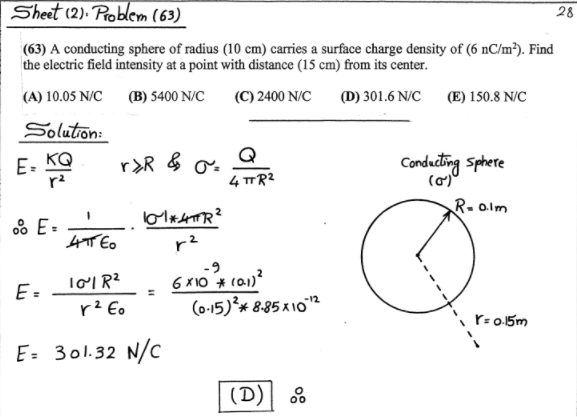 Sheet (2). Problem (63)
28
(63) A conducting sphere of radius (10 cm) carries a surface charge density of (6 nC/m²). Find
the electric field intensity at a point with distance (15 cm) from its center.
(A) 10.05 N/C (B) 5400 N/C (C) 2400 N/C (D) 301.6 N/C (E) 150.8 N/C
Solution:
E = KQ / r² r ≥ R & σ = Q / 4πR²
∴ E = 1 / 4πε₀ · |σ| * 4πR² / r²
E = |σ| R² / r² ε₀ = 6 × 10⁻⁹ * (0.1)² / (0.15)² * 8.85 × 10⁻¹²
E = 301.32 N/C
(D)
Conducting sphere
(σ)
R = 0.1m
r = 0.15m